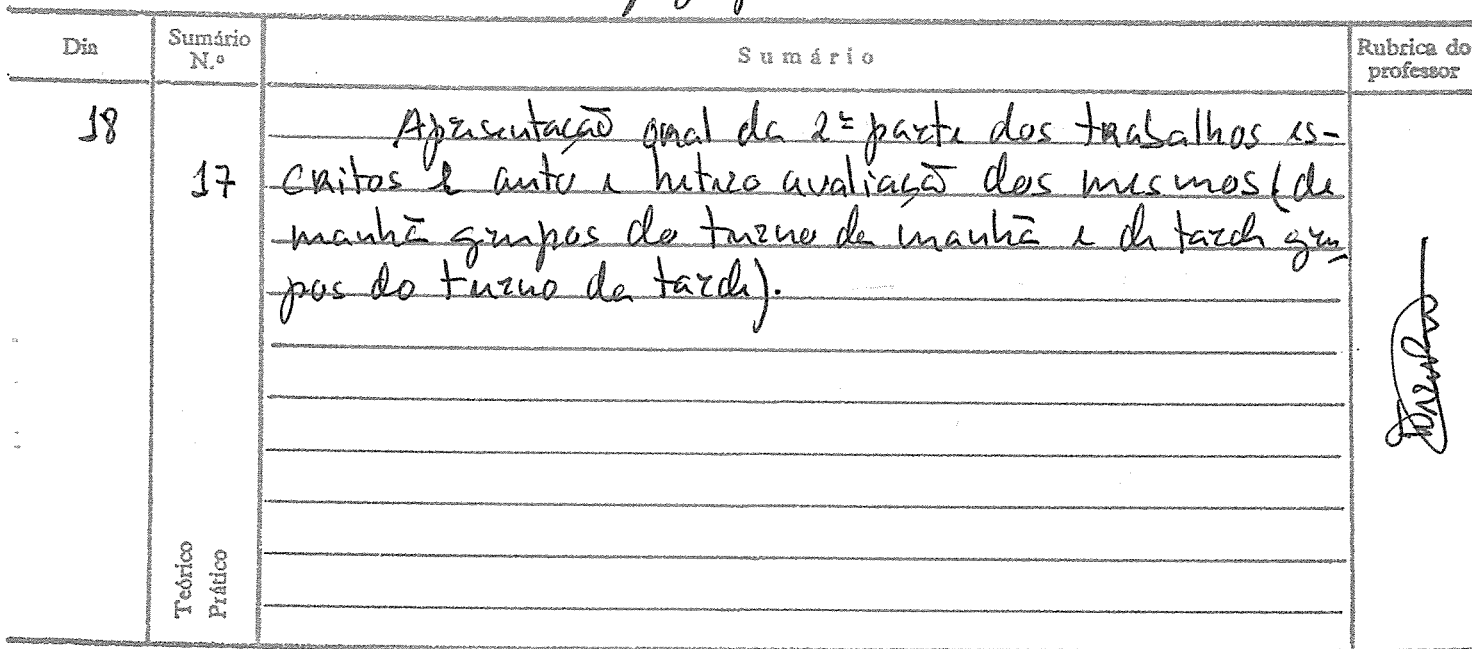 Dia
Sumário N.º
Sumário
Rubrica do professor
18
17
Apresentação oral da 2ª parte dos trabalhos es-
critos e auto e hetero avaliação dos mesmos (de
manhã grupos do turno da manhã e de tarde gru
pos do turno da tarde).
Teórico
Prático